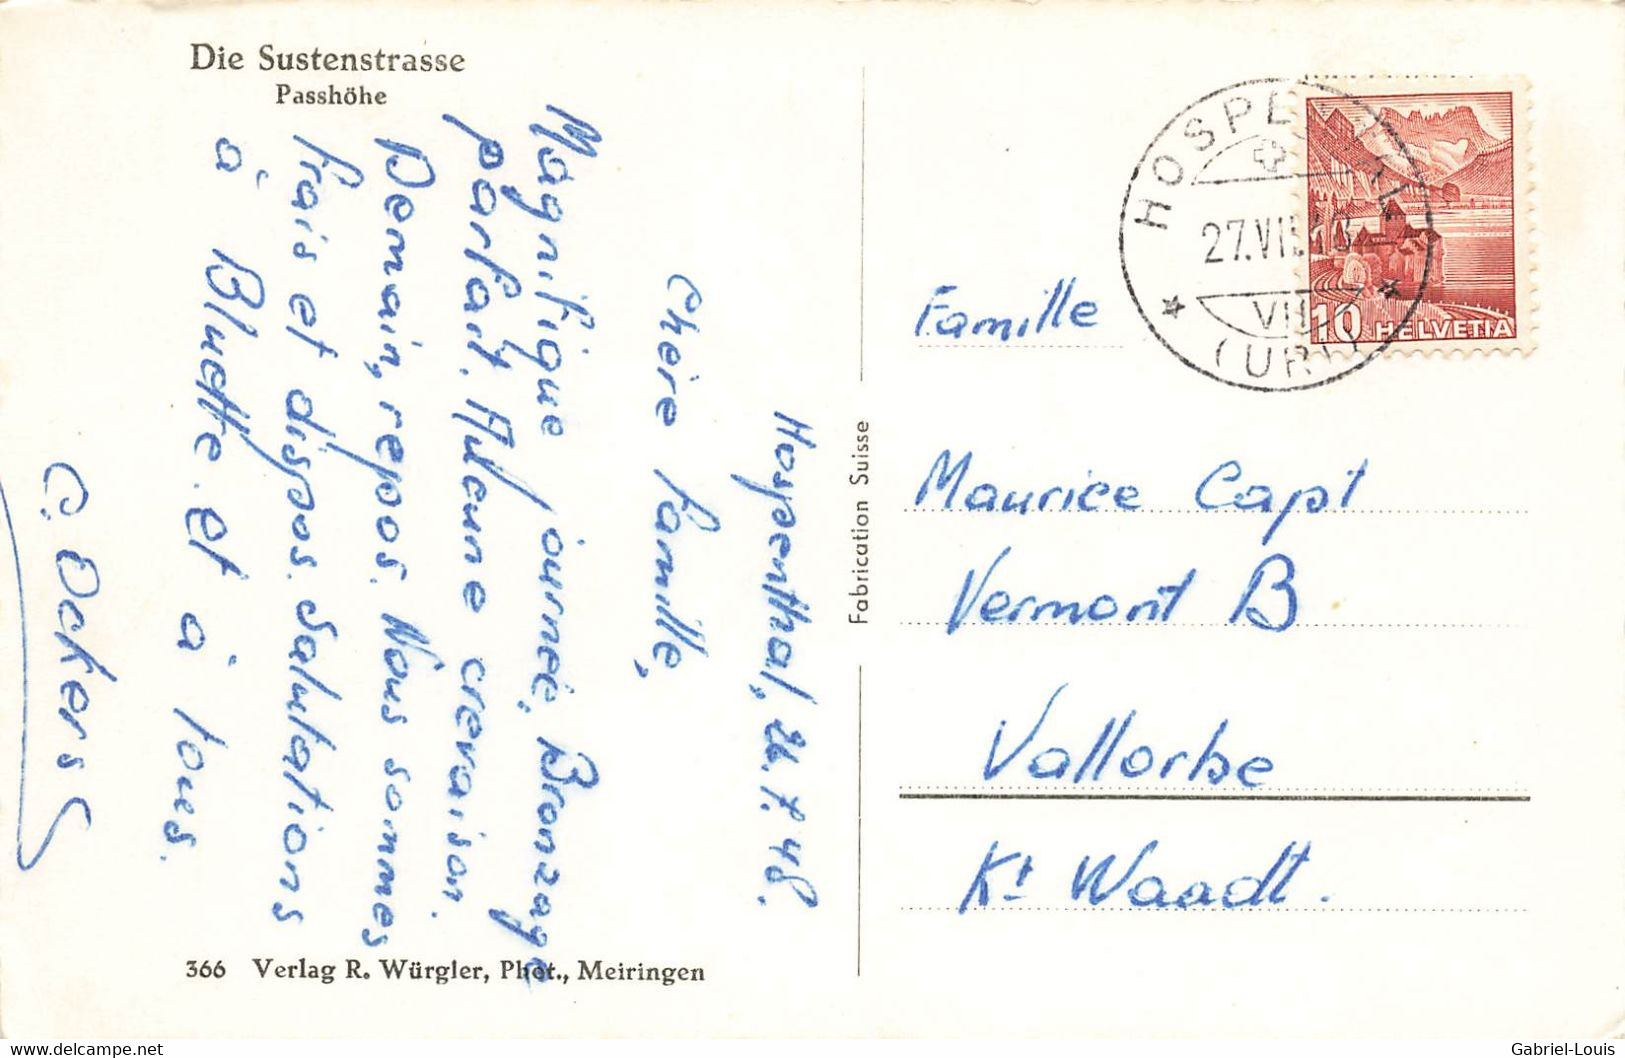 Die Sustenstrasse
Passhöhe
Hospenthal, 26.7.48.
Chère famille,
Magnifique journée. Bronzage
parfait. Aucune crevaison.
Demain, repos. Nous sommes
frais et dispos. Salutations
à Bluette et à tous.
C. Ockers
366 Verlag R. Würgler, Phot., Meiringen
Fabrication Suisse
HOSPENTHAL
27.VII.48
VII
(URI)
10 HELVETIA
Famille
Maurice Capt
Vermont B
Vallorbe
Kt Waadt.
delcampe.net
Gabriel-Louis